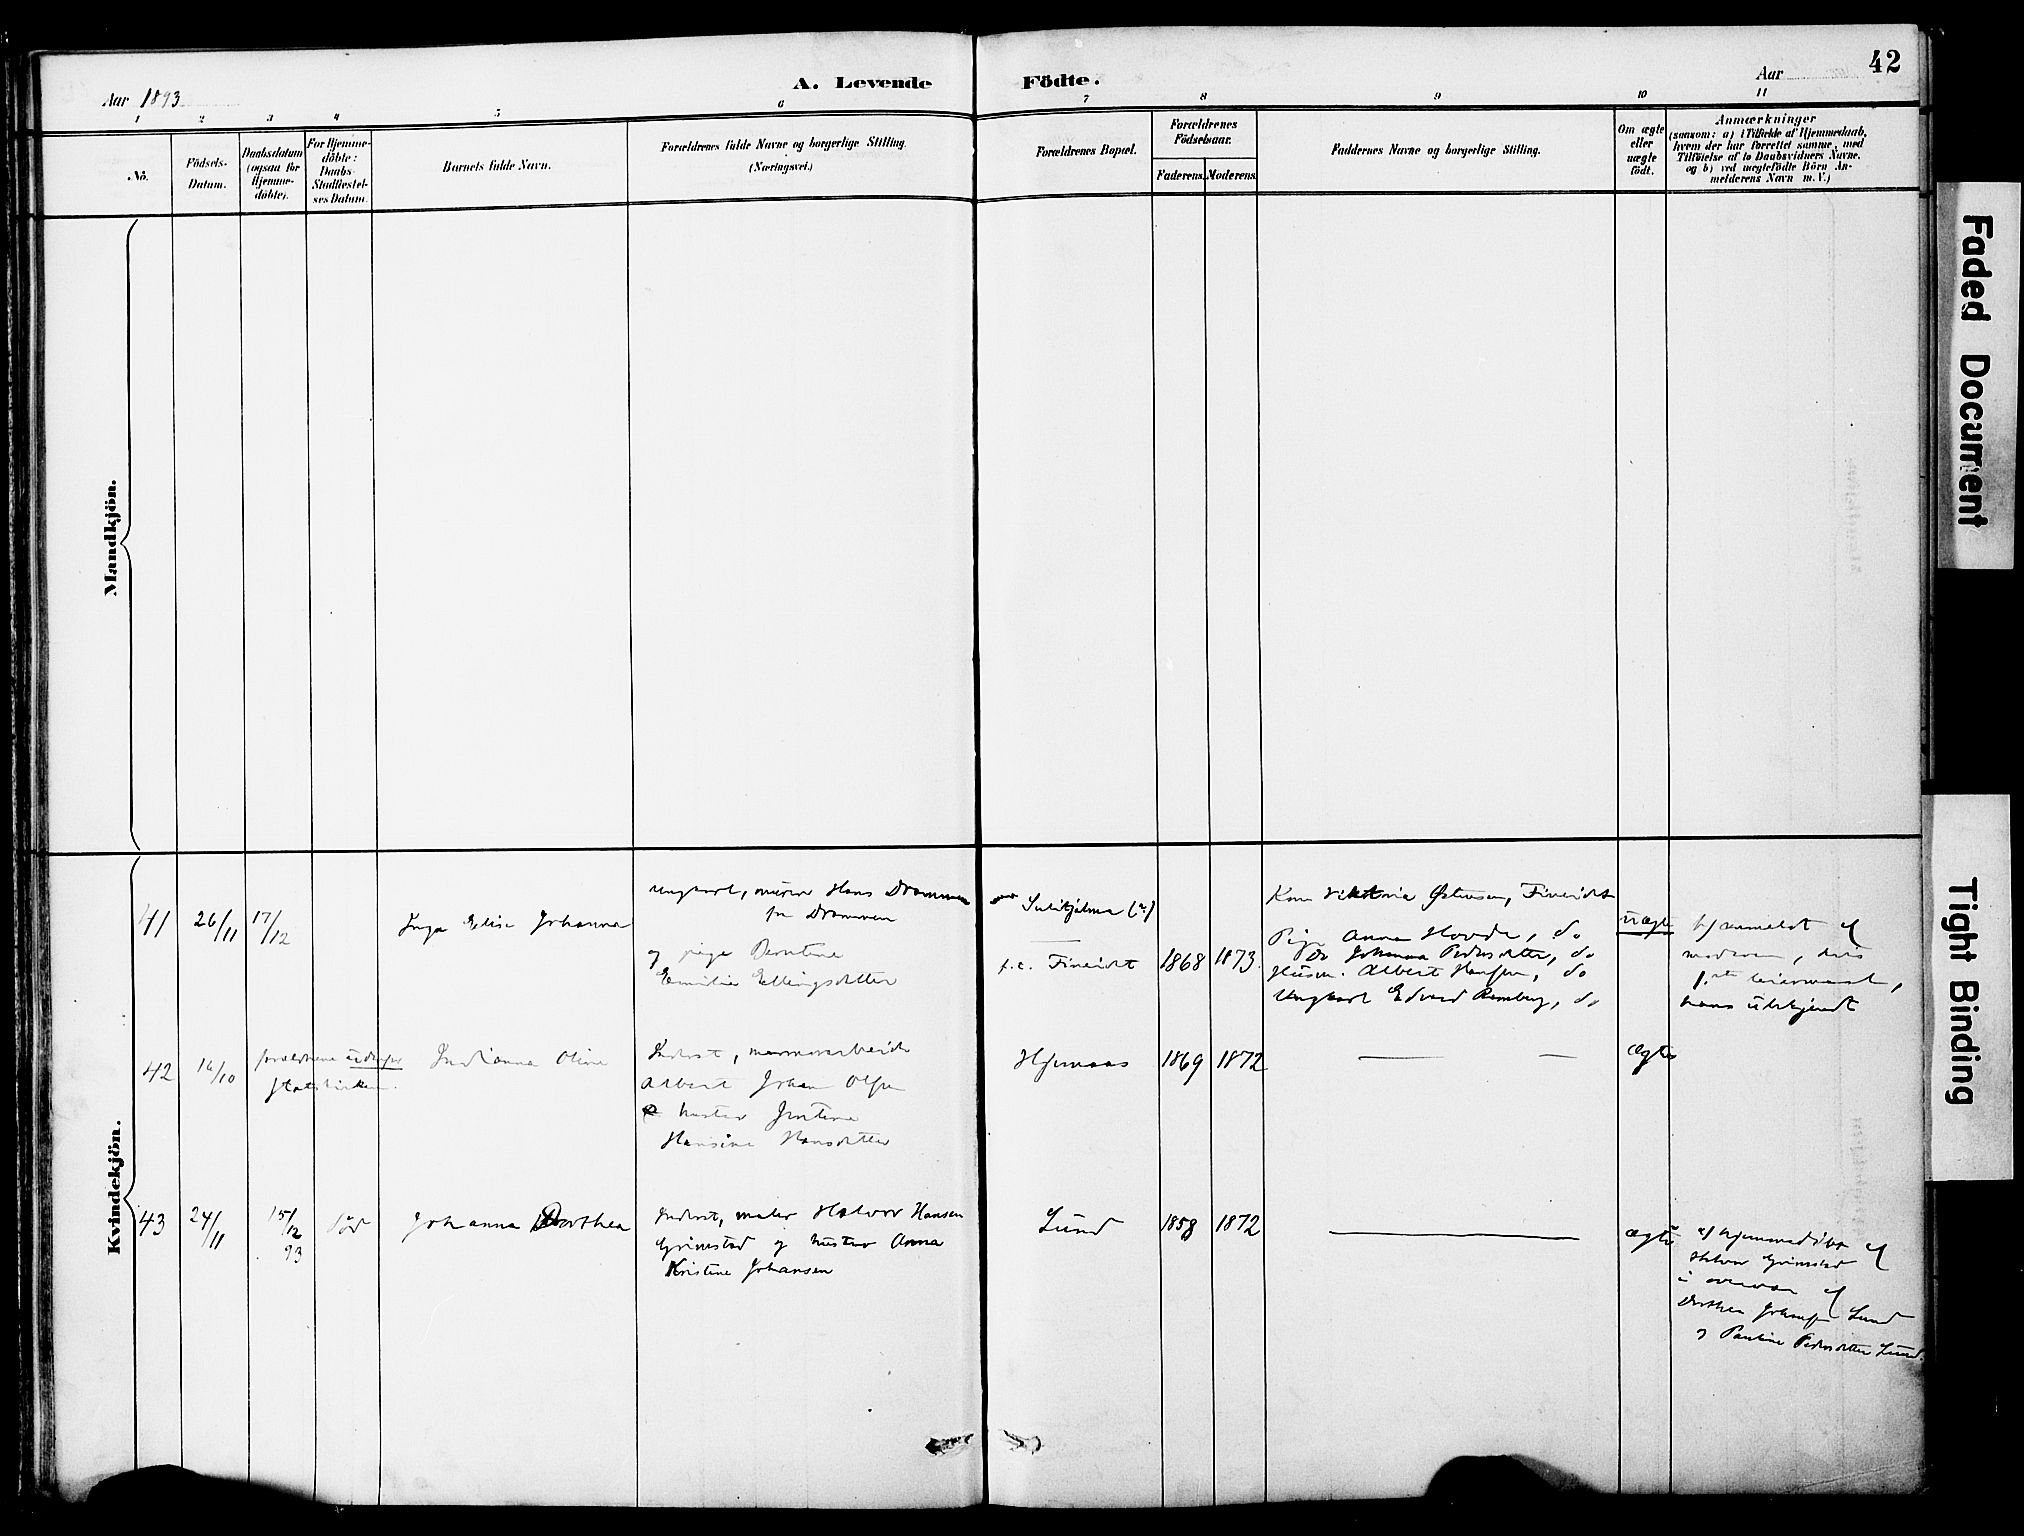 42
A. Levende Födte.
Aar 1893
Aar
1 2 3 4 5 6 7 8 9 10 11
No.
Födsels-
Datum.
Daabsdatum
(ogsaa for
Hjemme-
döbte).
For Hjemme-
döbte:
Daabs-
Stadfæstel-
ses Datum.
Barnets fulde Navn.
Forældrenes fulde Navne og borgerlige Stilling.
(Næringsvei.)
Forældrenes Bopæl.
Forældrenes
Födselsaar.
Faderens. Moderens.
Faddernes Navne og borgerlige Stilling.
Om ægte
eller
uægte
födt.
Anmærkninger
(saasom: a) i Tilfælde af Hjemmedaab,
hvem der har forrettet samme, med
Tilföielse af to Daabsvidners Navne.
og b) ved uægtefödte Börn An-
melderens Navn m. V.)
Mandkjön.
Kvindekjön.
41
26/11
17/12
Inga Elise Johanna
Ungkarl, murer Hans Drammen
fra Drammen
og pige Berntine
Emilie Ellingsdatter
Sulitjelma (?)
f.t. Fineidet
1868
1873
Kone Viktoria Østensen, Fineidet
Pige Anna Hovde, do
Do Johanna Pedersdatter, do
Husm. Albert Hansen, do
Ungkarl Edvard Ramberg, do
uægte
b/ anmeldt af
moderen, hans
1ste leiermaal,
hans ubekjendt
42
16/10
forældrene udenfor
statskirken.
Indianna Oline
Inderst, marmorarbeider
Albert Johan Olsen
hustru Jentine
Hansine Hansdatter
1869
1872
ægte
43
24/11
15/12
93
död
Johanna Dorthea
Inderst, maler Halvor Hansen
Grimstad og hustru Anna
Kristine Johansen
Lund
1858
1872
ægte
a/ hjemmedöbt af
Halvor Grimstad
i overvær af
Dorthea Johansen Lund
og Pauline Pedersdatter Lund.
Faded Document
Tight Binding